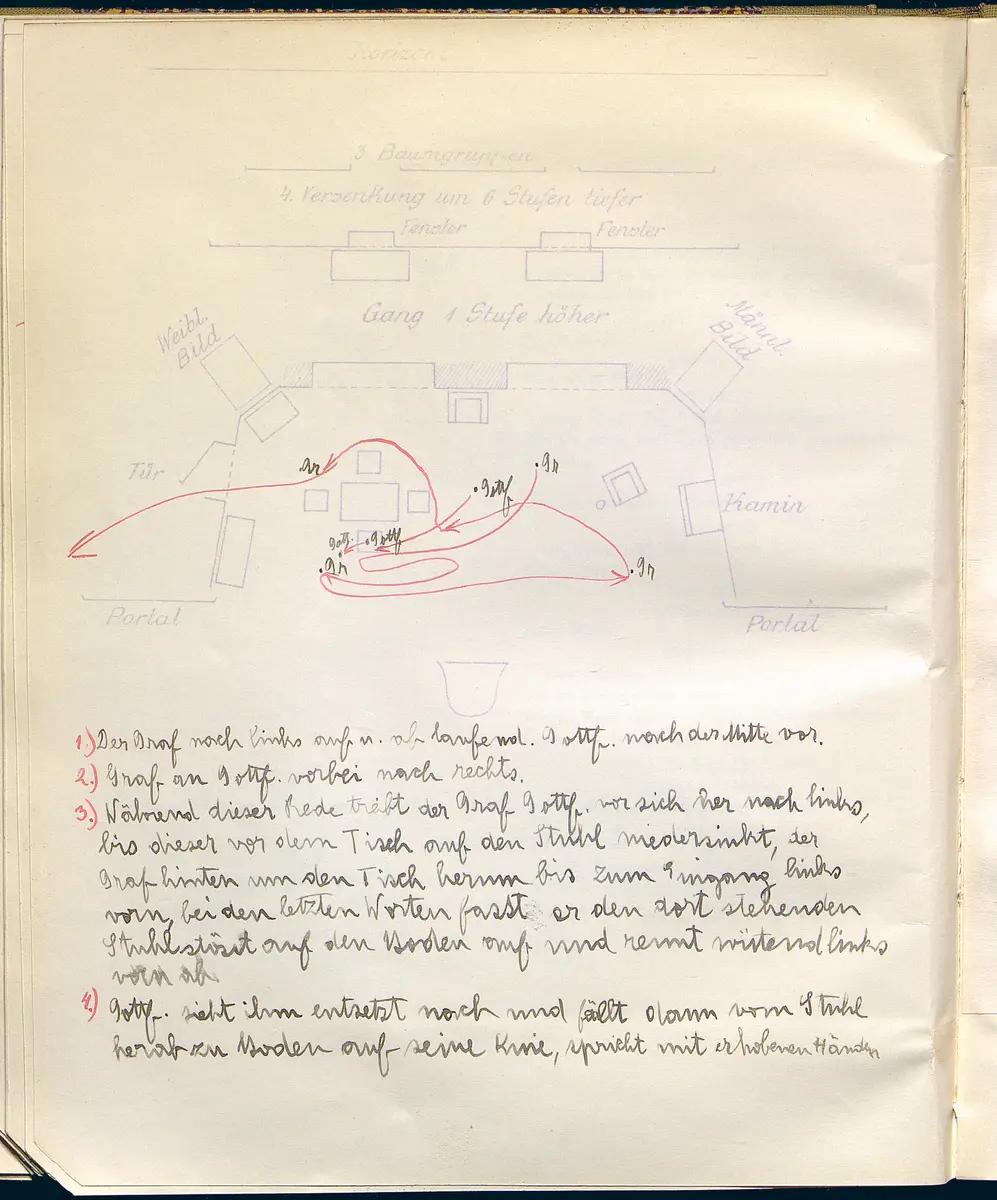 Horizont
3 Baumgruppen
4. Versenkung um 6 Stufen tiefer
Fenster Fenster
Gang 1 Stufe höher
Weibl.
Bild
Männl.
Bild
Tür
Gr
Gottf
Gr
Kamin
Gottf. Gottf
Gr
Gr
Portal
Portal
1.) Der Graf nach links auf u. ab laufend. Gottf. nach der Mitte vor.
2.) Graf an Gottf. vorbei nach rechts.
3.) Während dieser Rede treibt der Graf Gottf. vor sich her nach links,
bis dieser vor dem Tisch auf den Stuhl niedersinkt, der
Graf hinten um den Tisch herum bis zum Eingang links
vorn, bei den letzten Worten fasst er den dort stehenden
Stuhl stösst auf den Boden auf und rennt wütend links
vorn ab.
4.) Gottf. sieht ihm entsetzt nach und fällt dann vom Stuhl
herab zu Boden auf seine Knie, spricht mit erhobenen Händen